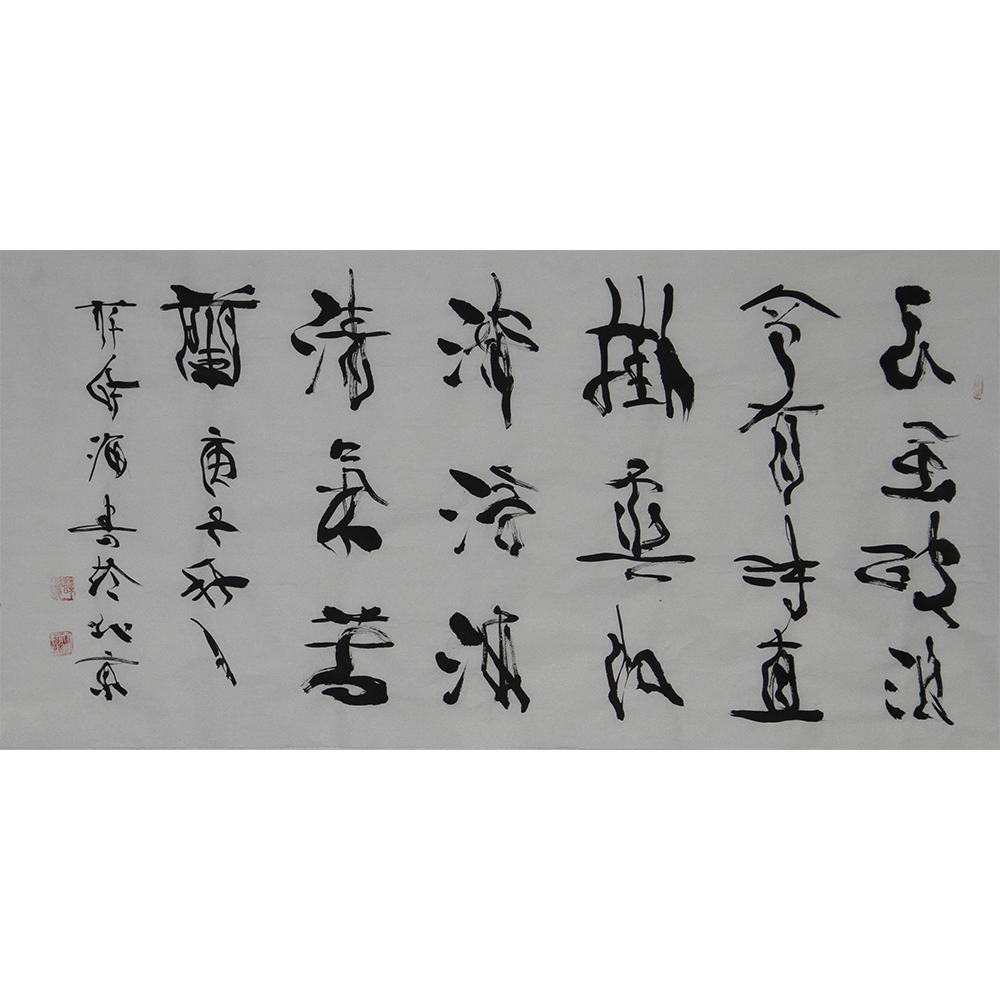 長風破浪
会有时直
掛雲帆
濟滄海
清氣若
蘭 庚子秋
海書於北京